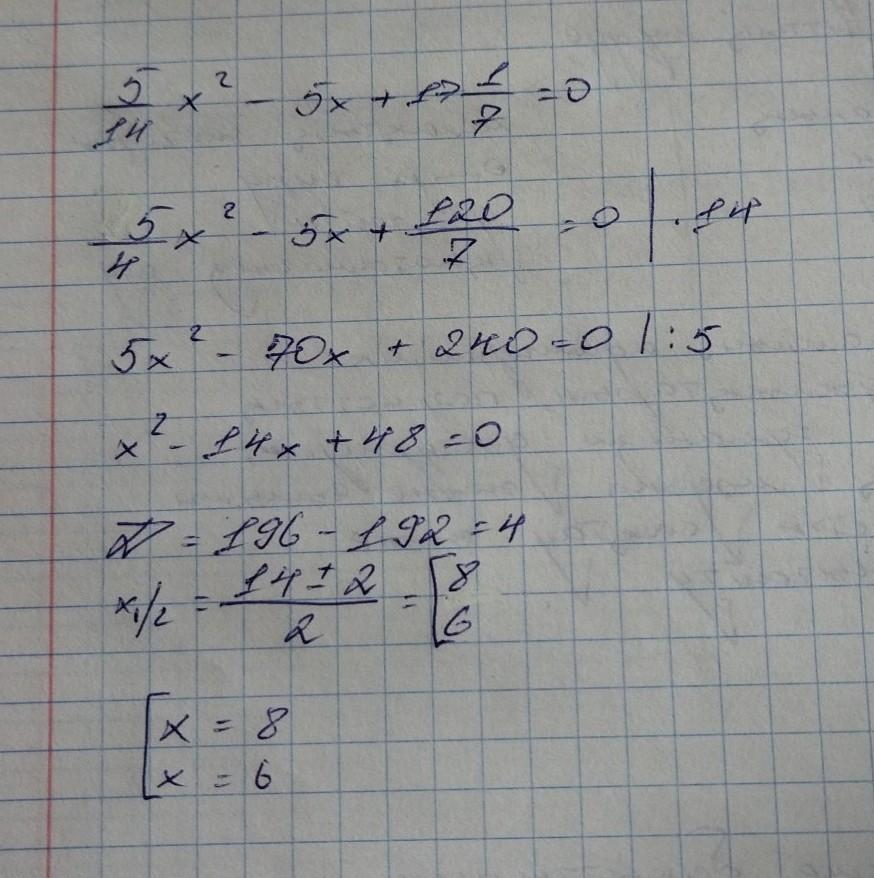 5/14 x² - 5x + 17 1/7 = 0
5/4 x² - 5x + 120/7 = 0 | · 14
5x² - 70x + 240 = 0 | : 5
x² - 14x + 48 = 0
D = 196 - 192 = 4
x₁/₂ = (14 ± 2)/2 = [8 6
[x = 8
x = 6